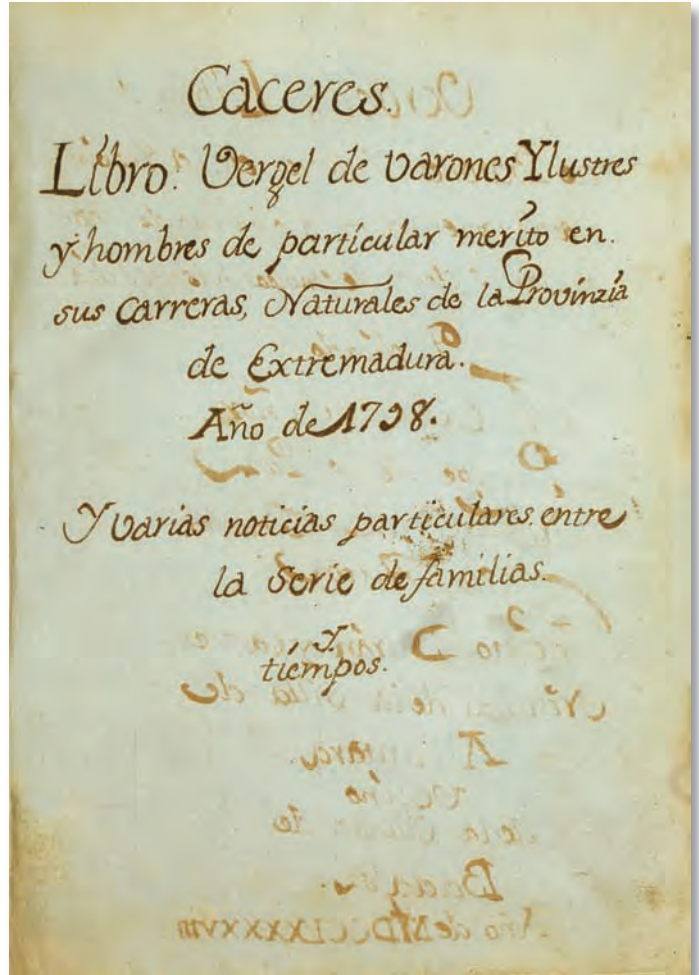 Caceres.
Libro. Vergel de varones Ylustres
y hombres de particular merito en.
sus carreras, Naturales de la Provinzia
de Extremadura.
Año de 1798.
Y varias noticias particulares entre
la Serie de familias.
y
tiempos.